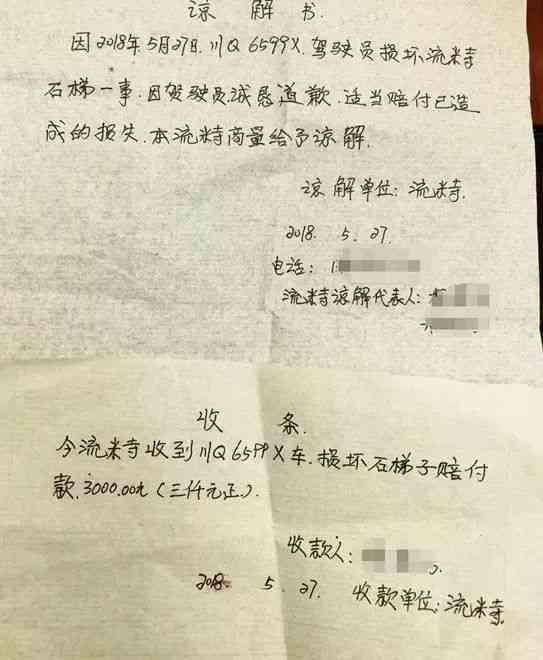 谅解书.
因2018年5月27日.川Q6599X.驾驶员损坏流米寺
石梯一事.因驾驶员诚恳道歉.适当赔付已造
成的损失.本流米寺商量给予谅解.
谅解单位:流米寺.
2018. 5. 27.
电话:1
流米寺谅解代表人:
收条.
今流米寺收到川Q6599X车.损坏石梯子赔付
款.3000.00元(三仟元正).
收款人:
2018. 5. 27. 收款单位:流米寺